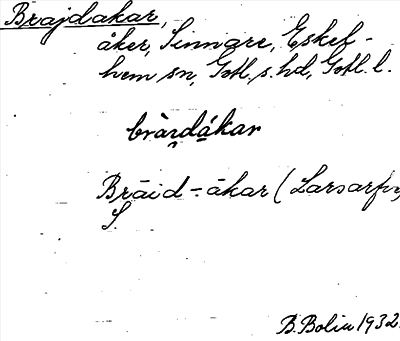 Brajdakar,
åker, Sinnare, Eskel-
hem sn, Gotl. s. hd, Gotl. l.
Bräid-åkar (Larsarfve,
S.
B. Bolin 1932.